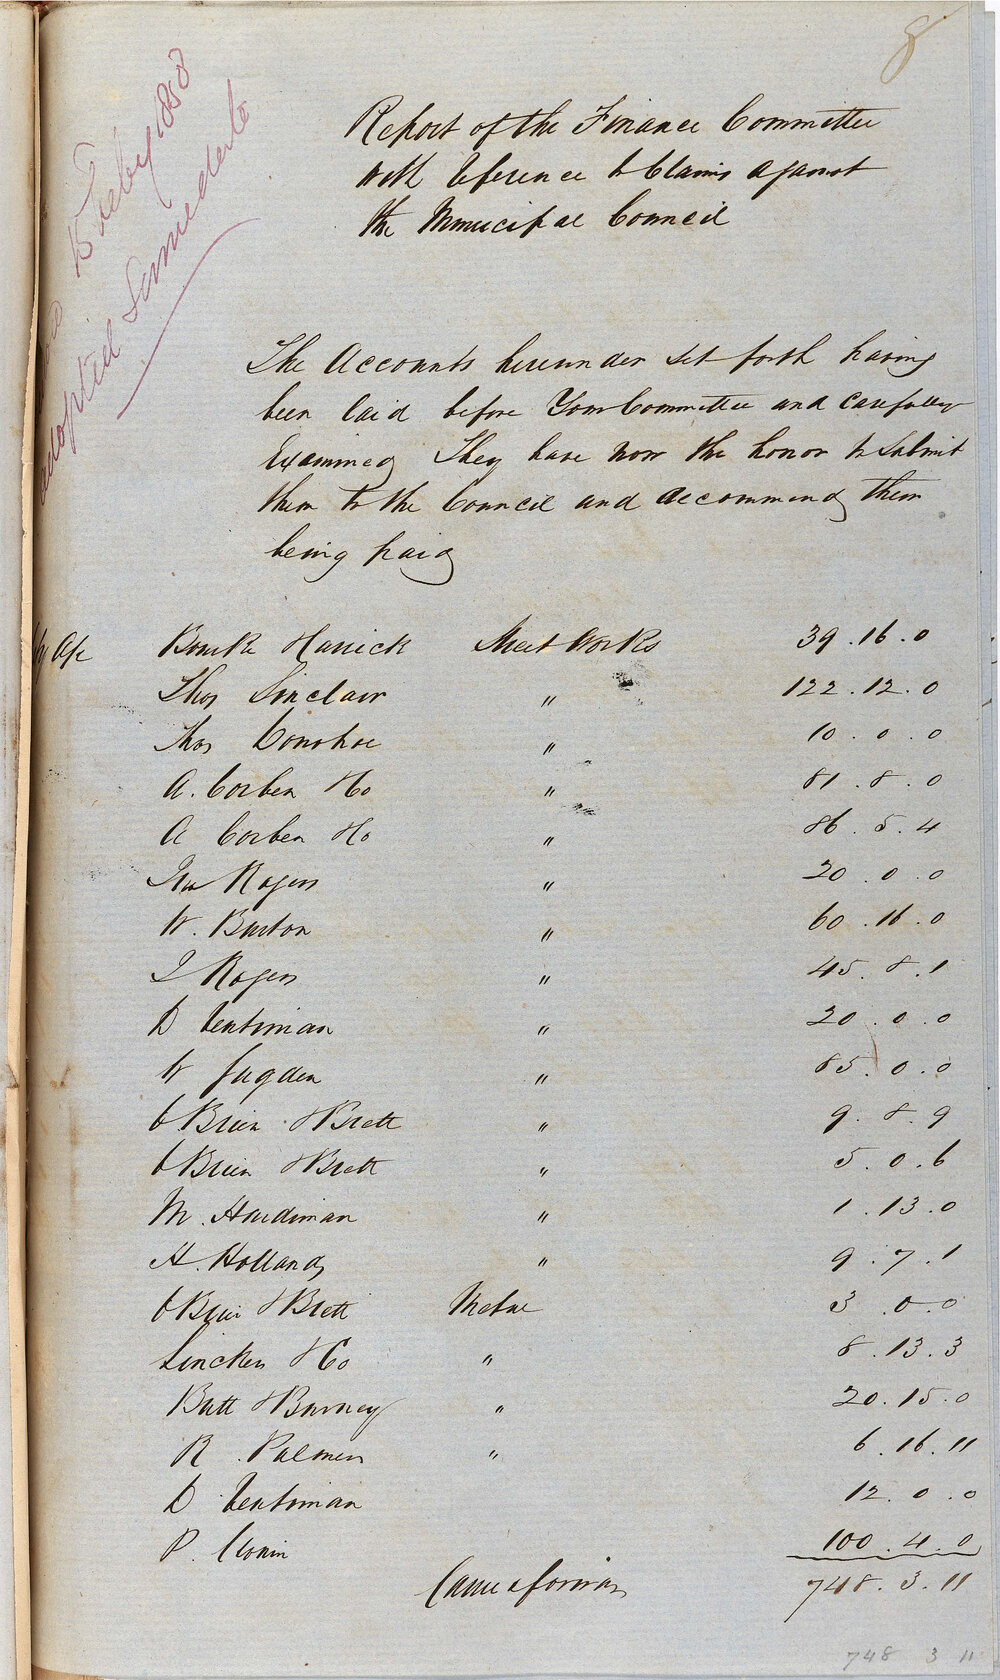 8
15 Feby 1858
adopted Same date
Report of the Finance Committee
with reference to Claims against
the Municipal Council
The Accounts hereunder set forth having
been laid before Your Committee and carefully
Examined They have now the honor to submit
them to the Council and recommend them
being paid
Bourke Street Works 39 . 16 . 0
Thos Sinclair " 122 . 12 . 0
Thos Donohoe " 10 . 0 . 0
A. Corben & Co " 81 . 8 . 0
A Corben & Co " 86 . 5 . 4
Rogers " 20 . 0 . 0
W. Burton " 60 . 16 . 0
J Rogers " 45 . 8 . 1
D Ventiman " 20 . 0 . 0
W Jugden " 85 . 0 . 0
O Brien & Brett " 9 . 8 . 9
O Brien & Brett " 5 . 0 . 6
M. Hardiman " 1 . 13 . 0
H. Holland " 9 . 7 . 1
O Brien & Brett 3 . 0 . 0
& Co " 8 . 13 . 3
Butt & Burney " 20 . 15 . 0
R. Palmer " 6 . 16 . 11
D Ventiman 12 . 0 . 0
P. Cronin 100 . 4 . 0
Carried forward 748 . 3 . 11
748 3 11